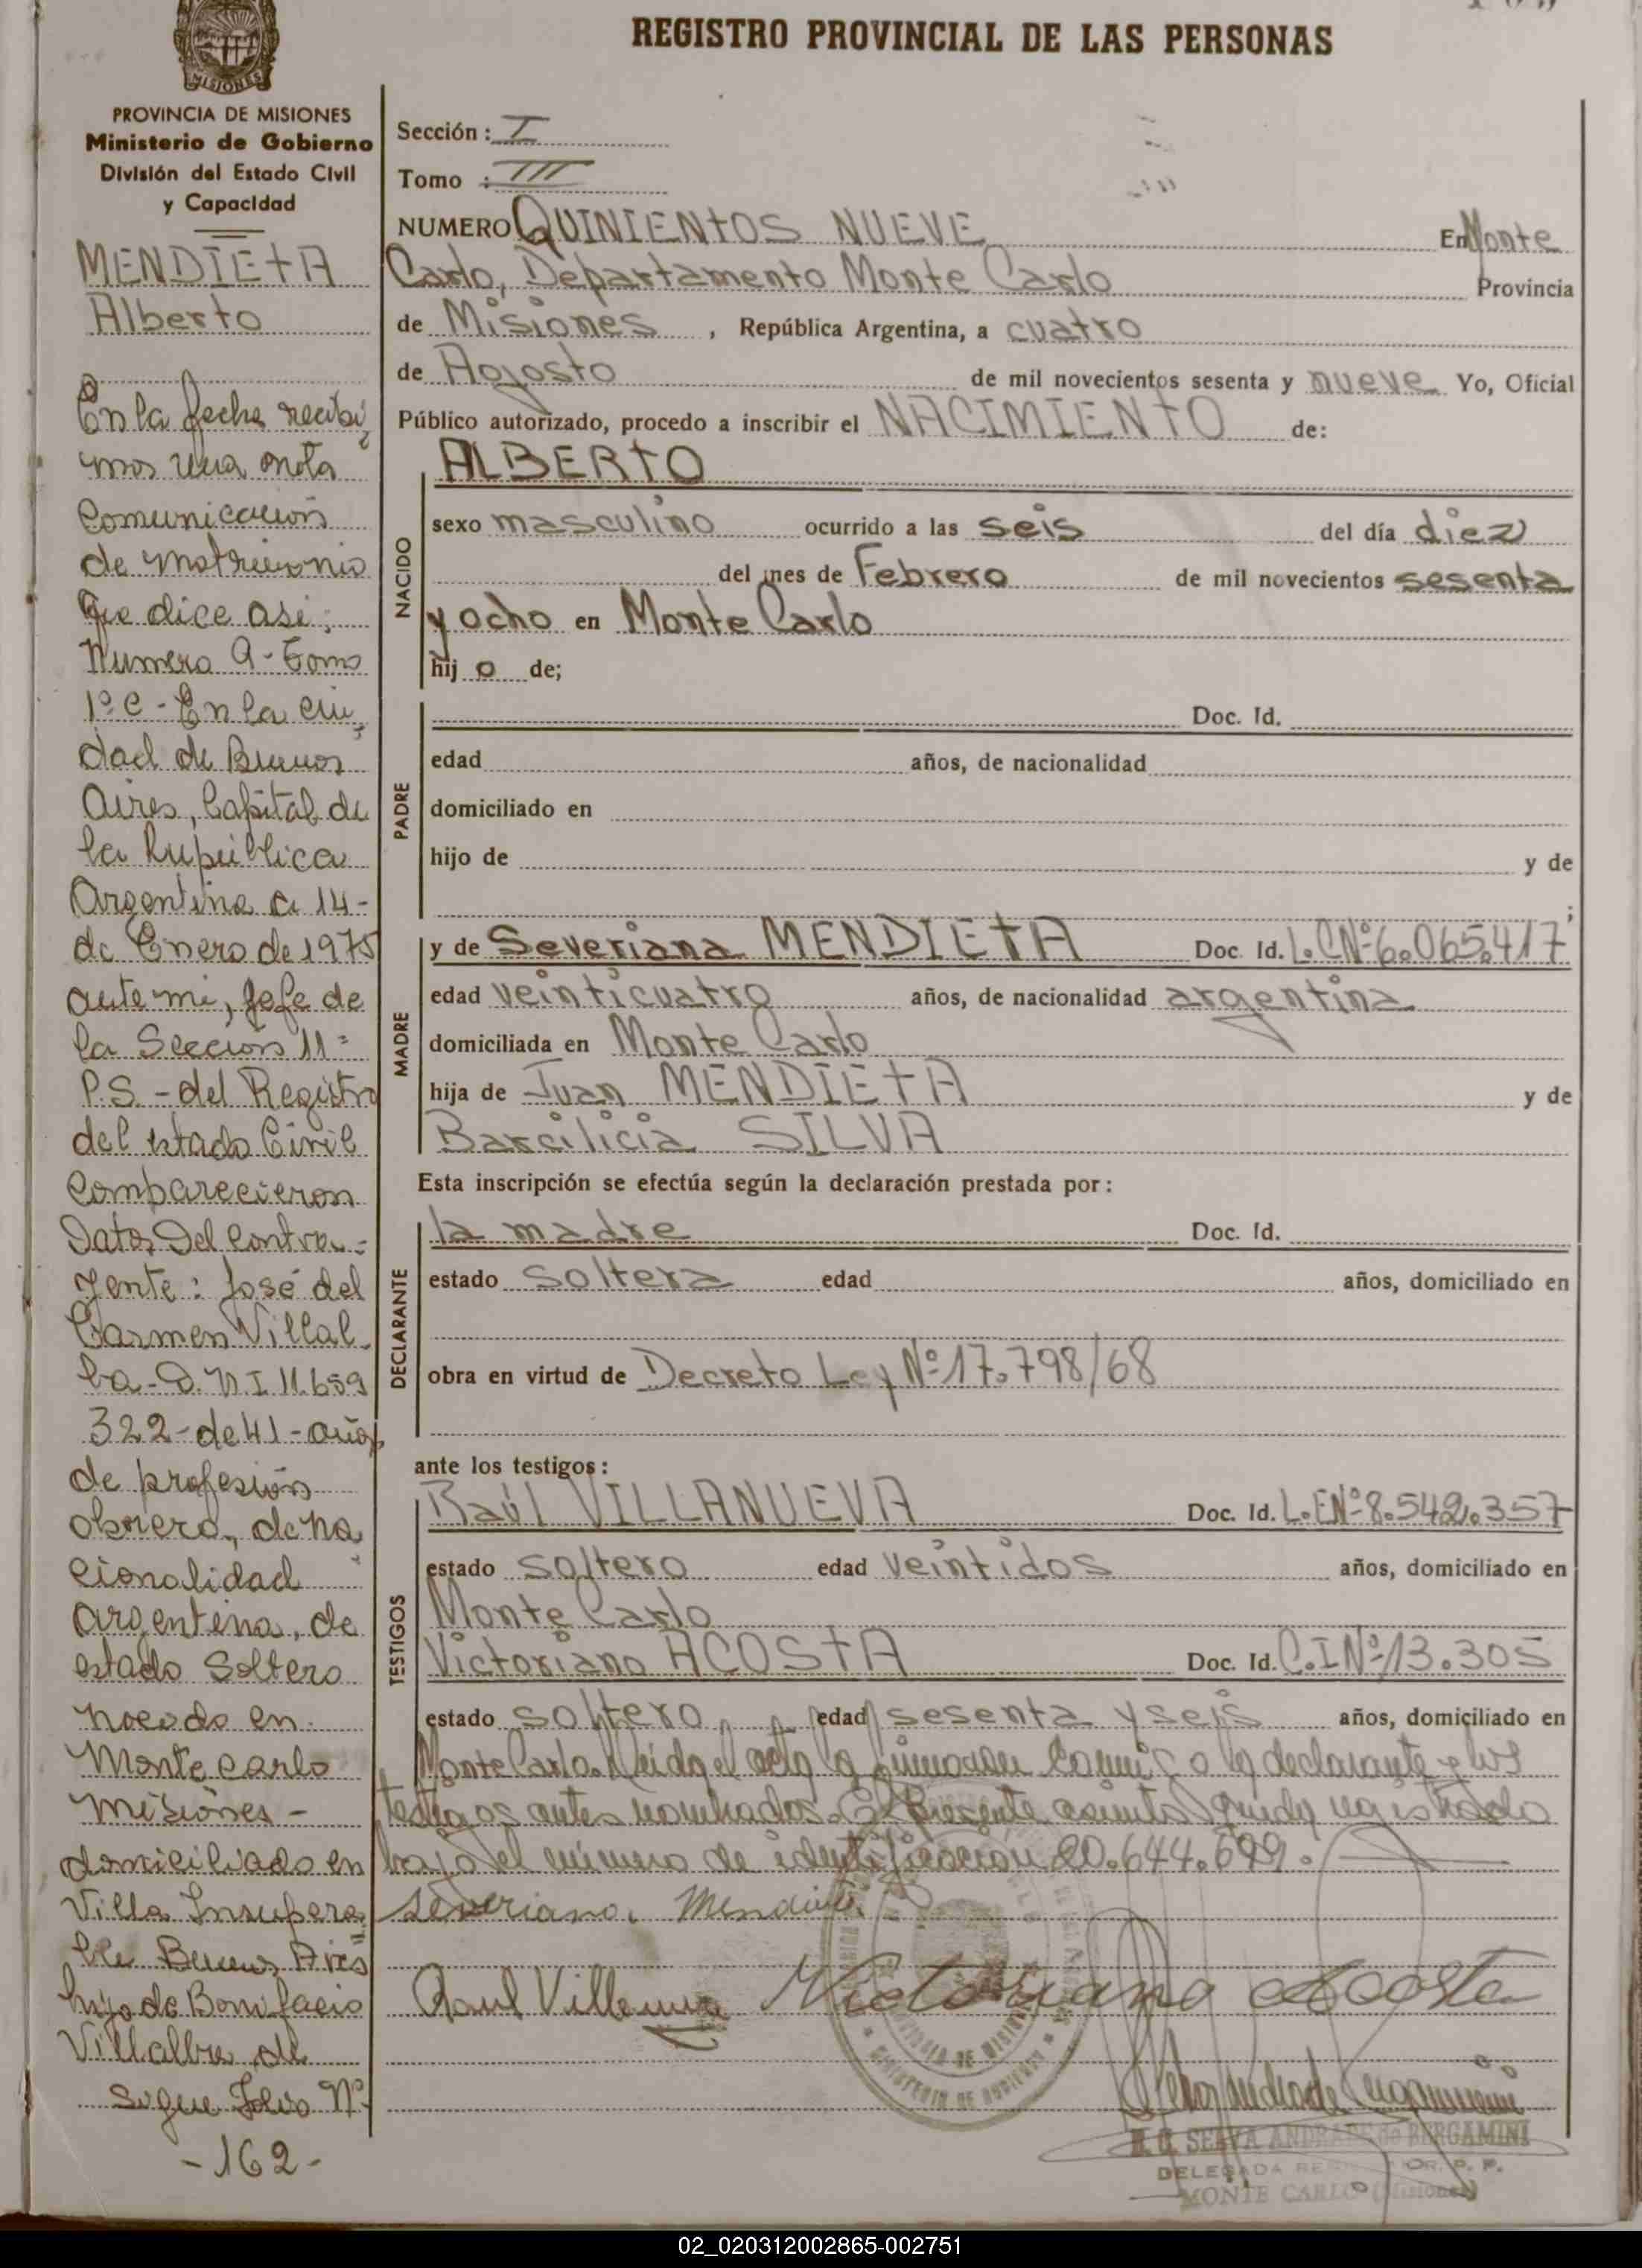 REGISTRO PROVINCIAL DE LAS PERSONAS
MISIONES
PROVINCIA DE MISIONES
Ministerio de Gobierno
División del Estado Civil
y Capacidad
MENDIETA
Alberto
En la fecha recibi
mos una nota
Comunicación
de matrimonio
que dice asi;
Numero 9 - Tomo
1º C - En la ciu
dad de Buenos
Aires, Capital de
la Republica
Argentina a 14-
de Enero de 1975
ante mi, Jefe de
la Sección 11ª
P.S. - del Registro
del Estado Civil
Comparecieron
Datos Del Contra-
yente: José del
Carmen Villal
ba - D.N.I 11.659
322 - de 41 - años
de profesión
obrero, de na
cionalidad
argentina, de
estado Soltero
nacido en
Monte carlo
Misiones -
domiciliado en
Villa Insupera
ble Buenos Aires
hijo de Bonifacio
Villalba, de
Sigue Folio Nº
- 162 -
Sección : I
Tomo : III
NUMERO QUINIENTOS NUEVE En Monte
Carlo, Departamento Monte Carlo Provincia
de Misiones , República Argentina, a cuatro
de Agosto de mil novecientos sesenta y nueve Yo, Oficial
Público autorizado, procedo a inscribir el NACIMIENTO de:
NACIDO
ALBERTO
sexo masculino ocurrido a las seis del día diez
del mes de Febrero de mil novecientos sesenta
y ocho en Monte Carlo
hij o de;
PADRE
Doc. Id.
edad años, de nacionalidad
domiciliado en
hijo de y de
;
MADRE
y de Severiana MENDIETA Doc. Id. L.C Nº 6.065.417
edad veinticuatro años, de nacionalidad argentina
domiciliada en Monte Carlo
hija de Juan MENDIETA y de
Barcilicia SILVA
Esta inscripción se efectúa según la declaración prestada por:
DECLARANTE
la madre Doc. Id.
estado soltera edad años, domiciliado en
obra en virtud de Decreto Ley Nº 17.798/68
ante los testigos:
TESTIGOS
Raúl VILLANUEVA Doc. Id. L.E Nº 8.542.357
estado soltero edad veintidos años, domiciliado en
Monte Carlo
Victoriano ACOSTA Doc. Id. C.I Nº 13.305
estado soltero edad sesenta y seis años, domiciliado en
Monte Carlo. Leida el acta la firmaron conmigo la declarante y los
testigos antes nombrados. El presente asiento queda registrado
bajo el número de identificación 20.644.699.
Severiana Mendieta
Raul Villanueva Victoriano Acosta
H. G. SELVA ANDRADE de BERGAMINI
DELEGADA
MONTE CARLO (Misiones)
02_020312002865-002751